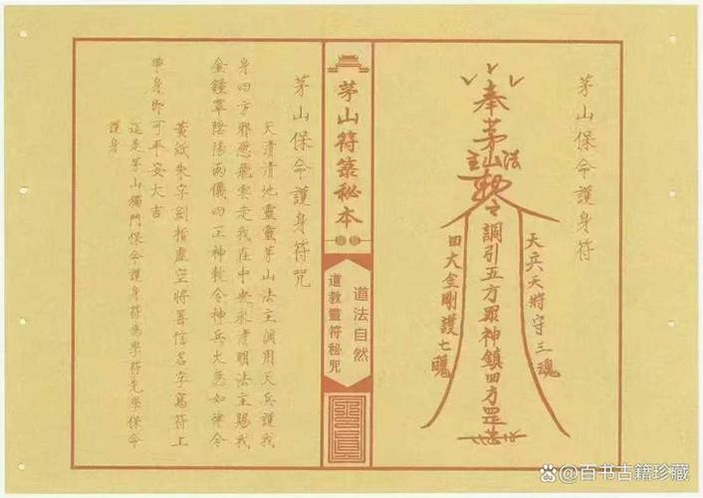 茅山保命護身符
奉茅山法主敕令
調引五方眾神鎮四方罡煞
天兵天將守三魂
四大金剛護七魄
茅山符箓秘本
道法自然
道教靈符秘咒
茅山保命護身符咒
天清清地靈靈茅山法主演用天兵護我
身四方邪惡飛雲走我在中央永清明法主賜我
金鐘罩陰陽兩儀四正神敕令神兵火急如律令
黃紙朱字劍指虛空將善信名字寫符上
帶身即可平安大吉
這是茅山獨門保命護身符為學符先學保命
護身
百书古籍珍藏